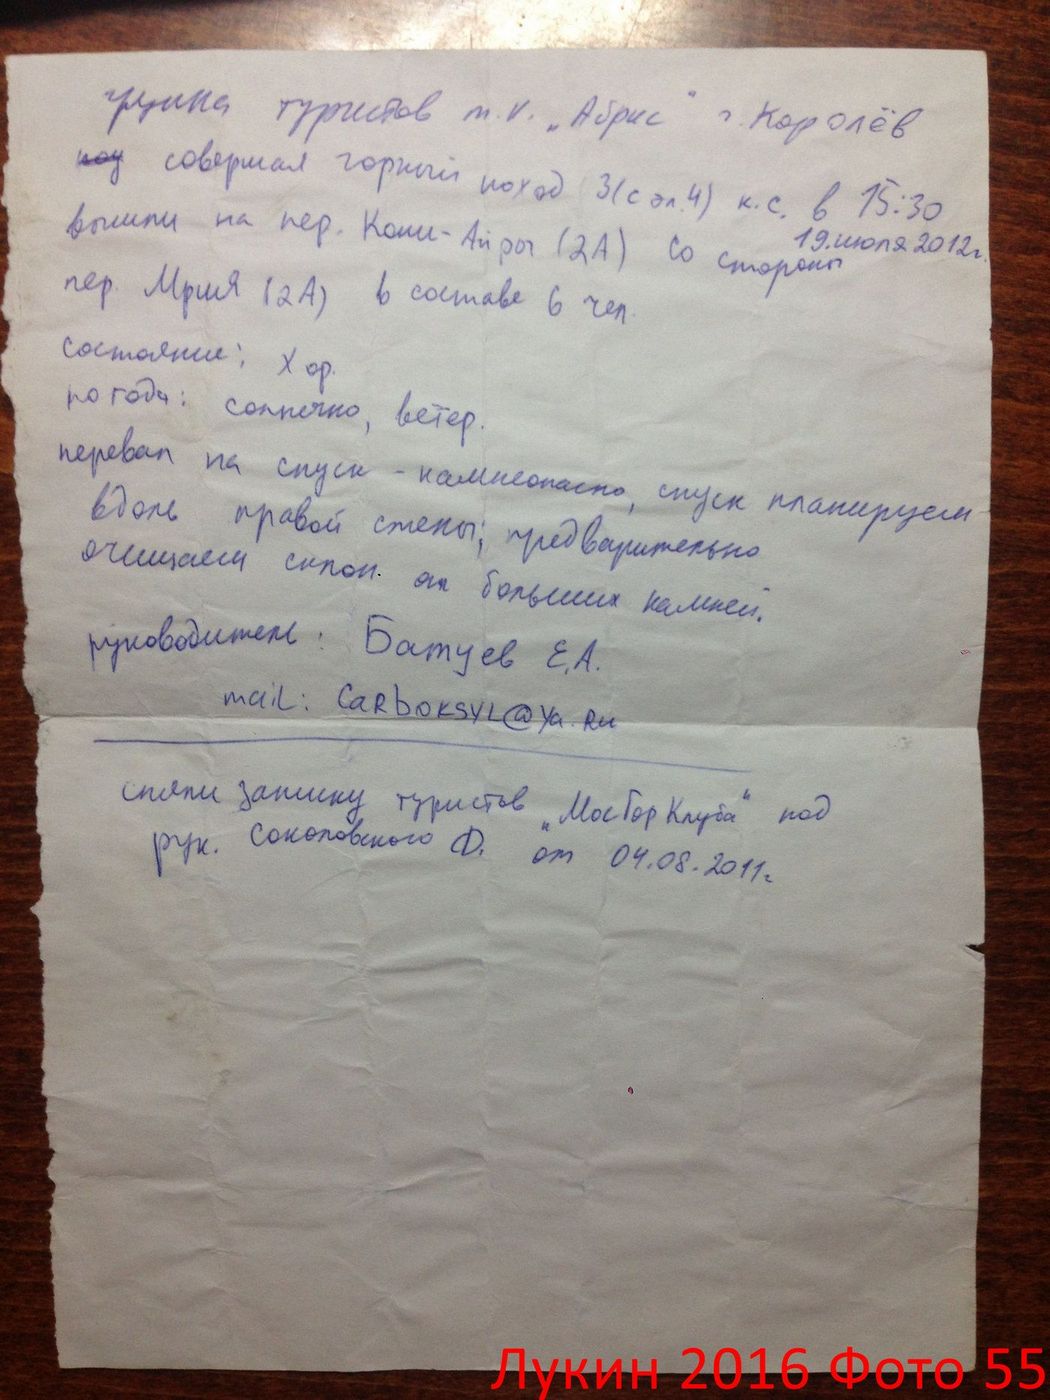 группа туристов т.к. „Абрис“ г. Королёв
совершая горный поход 3(с эл.4) к.с. в 15:30
19.июля 2012г.
вышли на пер. Кош-Айры (2А) со стороны
пер. Мрия (2А) в составе 6 чел.
состояние: хор.
погода: солнечно, ветер.
перевал на спуск - камнеопасно, спуск планируем
вдоль правой стены; предварительно
очищаем склон от больших камней.
руководитель: Батуев Е.А.
mail: CARboKSYL@ya.Ru
сняли записку туристов „МосГорКлуба“ под
рук. Соколовского Ф. от 04.08.2011г
Лукин 2016 Фото 55